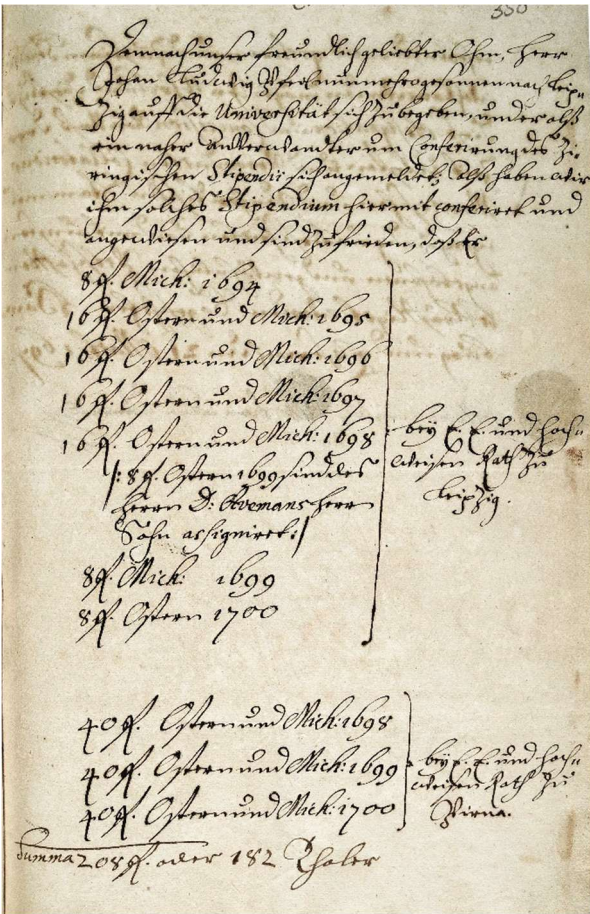 350
Demnach unser freundlich geliebter Ohm, Herr
Johan Ludwig nunmehro gesonnen nach Leip-
zig auff die Universität sich zu begeben, und er alß
ein naher Anverwandter um Conferirung des Zi-
ringischen Stipendii sich angemeldet; Alß haben wir
ihm solches Stipendium hiermit conferiret und
angewiesen und sind zufrieden, daß Er
8 fl. Mich: 1694
16 fl. Ostern und Mich: 1695
16 fl. Ostern und Mich: 1696
16 fl. Ostern und Mich: 1697
16 fl. Ostern und Mich: 1698
/: 8 fl. Ostern 1699 sind des
Herrn D: Herr
Sohn assigniret :/
8 fl. Mich: 1699
8 fl. Ostern 1700
bey E. E. und Hoch-
weisen Rath zu
Leipzig.
40 fl. Ostern und Mich: 1698
40 fl. Ostern und Mich: 1699
40 fl. Ostern und Mich: 1700
bey E. E. und Hoch-
weisen Rath zu
Pirna.
Summa 208 fl. oder 182 Thaler